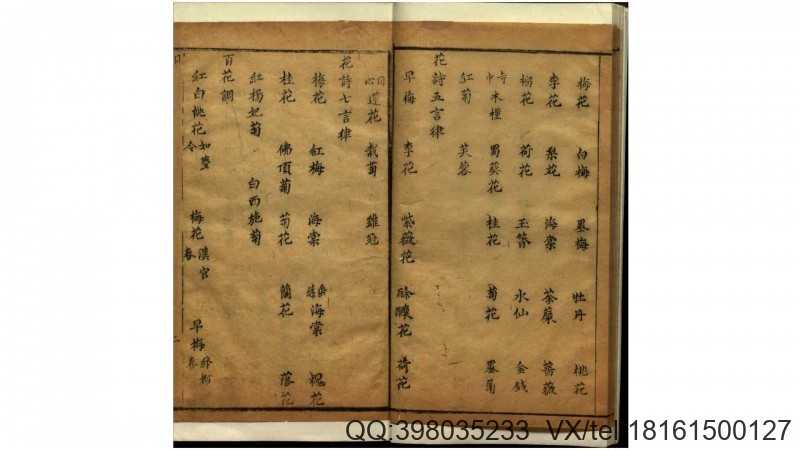 梅花 白梅 墨梅 牡丹 桃花
李花 梨花 海棠 荼䕷 薔薇
榴花 荷花 玉簪 水仙 金錢
木槿 蜀葵花 桂花 菊花 墨菊
紅菊 芙蓉
花詩五言律
早梅 李花 紫薇花 酴醾花 荷花
同心蓮花 栽菊 雞冠
花詩七言律
梅花 紅梅 海棠 垂絲海棠 槐花
桂花 佛頂菊 菊花 蘭花 落花
紅楊妃菊 白西施菊
百花調
紅白桃花 如夢令 梅花 漢宮春 早梅
QQ:398035233 VX/tel:18161500127